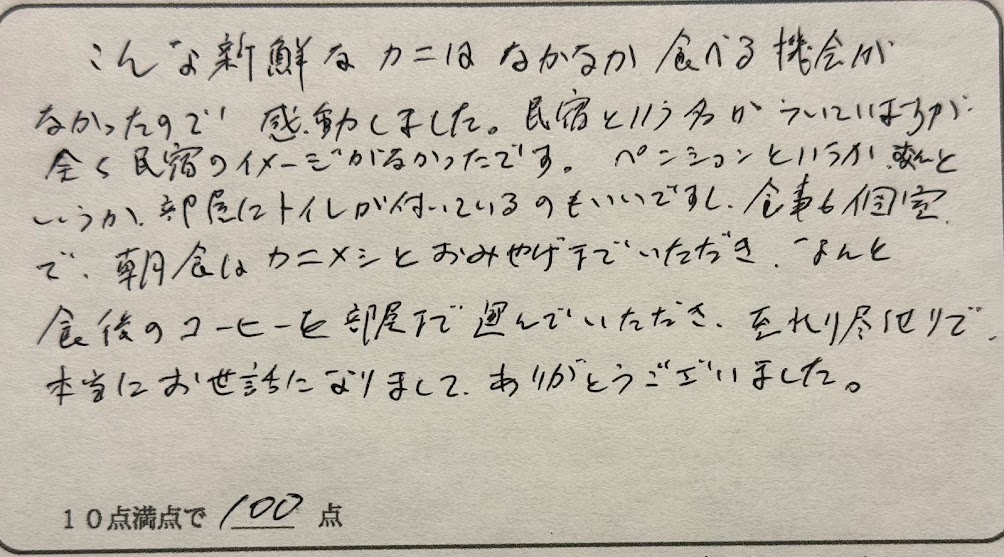 こんな新鮮なカニはなかなか食べる機会が
なかったので 感動しました。民宿という名がついていますが
全く民宿のイメージがなかったです。ペンションというか、なんと
いうか、部屋にトイレが付いているのもいいですし、食事も個室
で、朝食はカニメシとおみやげまでいただき、なんと
食後のコーヒーを部屋まで運んでいただき、至れり尽せりで、
本当にお世話になりまして、ありがとうございました。
10点満点で 100 点